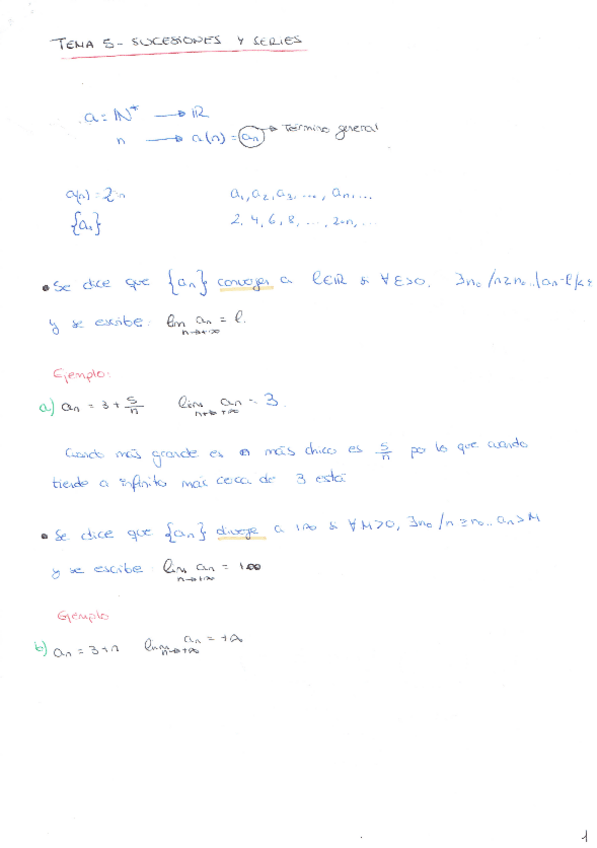 TEMA 5 - SUCESIONES Y SERIES
a = ℕ* → ℝ
n → a(n) = an → Término general
a(n) = 2·n a₁, a₂, a₃, ..., aₙ, ...
{aₙ} 2, 4, 6, 8, ..., 2·n, ...
• Se dice que {aₙ} converge a l∈ℝ si ∀ε>0, ∃n₀ / n≥n₀.. |aₙ-l|<ε
y se escribe: lim aₙ = l.
n→+∞
Ejemplo:
a) aₙ = 3 + 5/n lim aₙ = 3.
n→+∞
Cuando más grande es n más chico es 5/n por lo que cuando
tiende a infinito más cerca de 3 está
• Se dice que {aₙ} diverge a +∞ si ∀M>0, ∃n₀ / n≥n₀.. aₙ>M
y se escribe: lim aₙ = +∞
n→+∞
Ejemplo
b) aₙ = 3+n lim aₙ = +∞
n→+∞
1